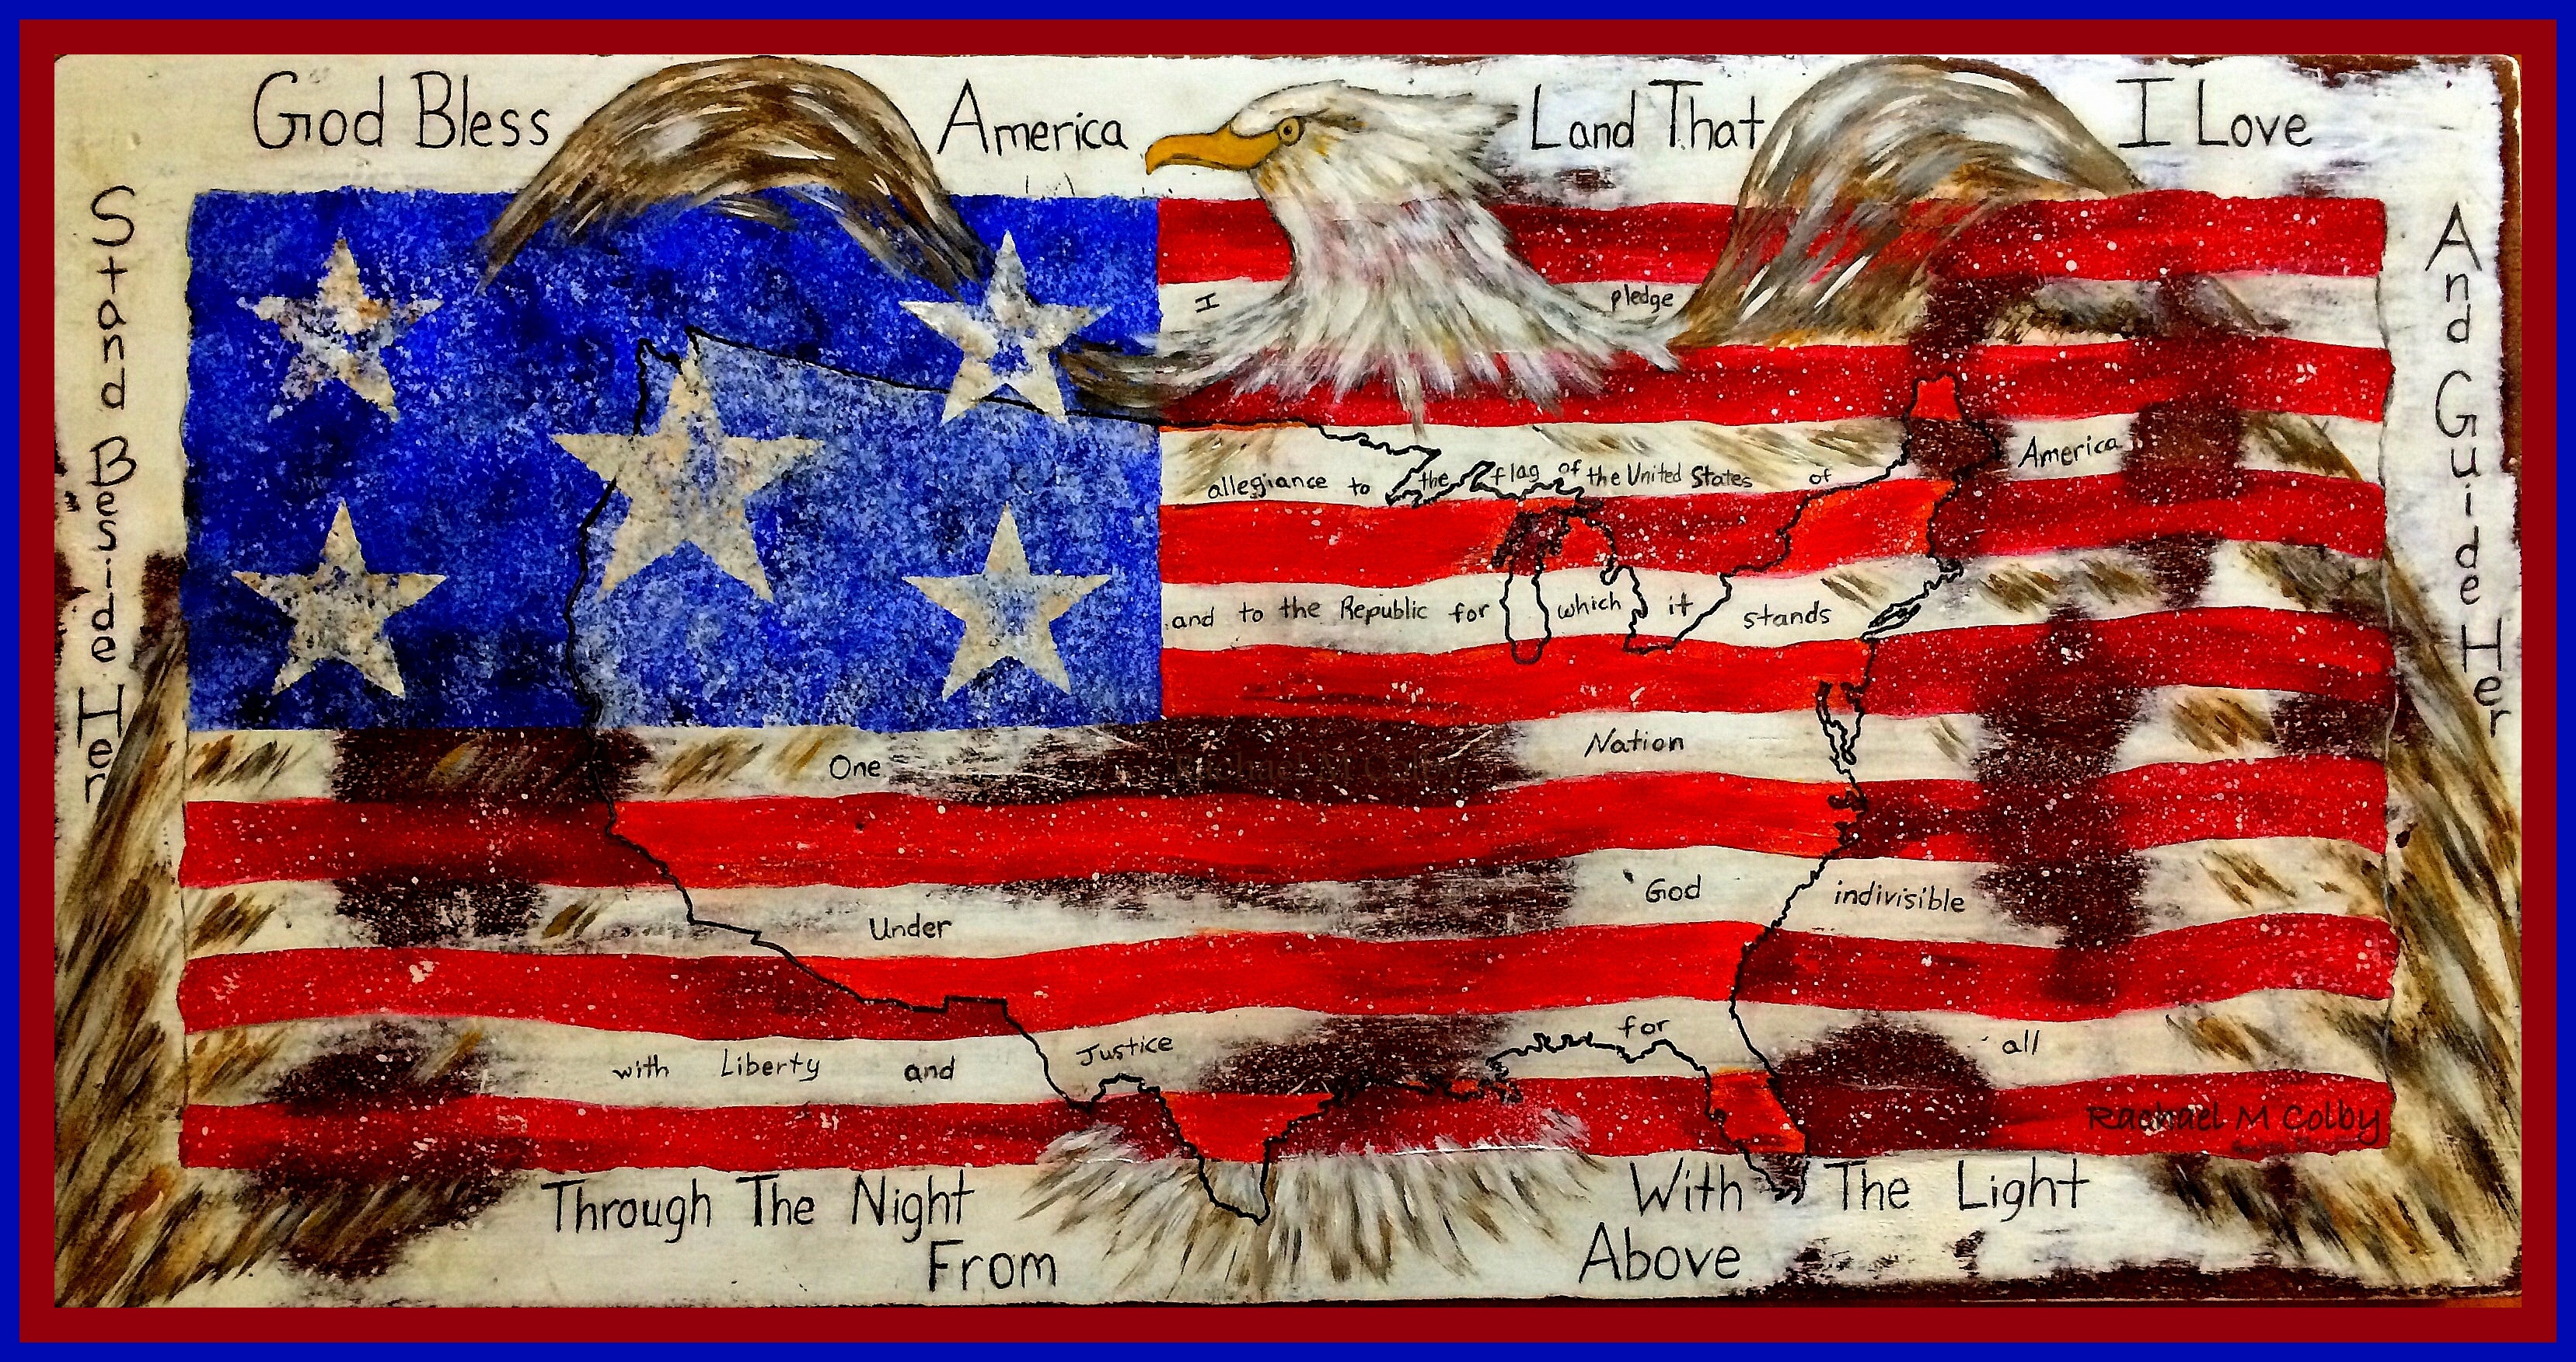 God Bless America Land That I Love
Stand Beside Her
And Guide Her
I pledge
allegiance to the flag of the United States of America
and to the Republic for which it stands
One Nation
Under God indivisible
with Liberty and Justice for all
Rachael M Colby
Rachael M Colby
Through The Night With The Light
From Above